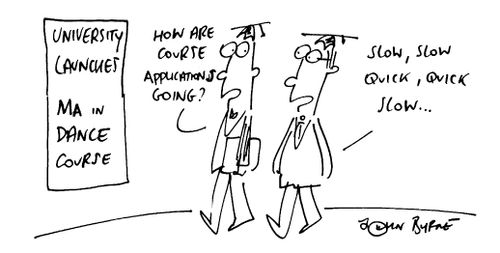 UNIVERSITY
LAUNCHES
MA IN
DANCE
COURSE
HOW ARE
COURSE
APPLICATIONS
GOING?
SLOW, SLOW
QUICK, QUICK
SLOW...
JOHN BYRNE